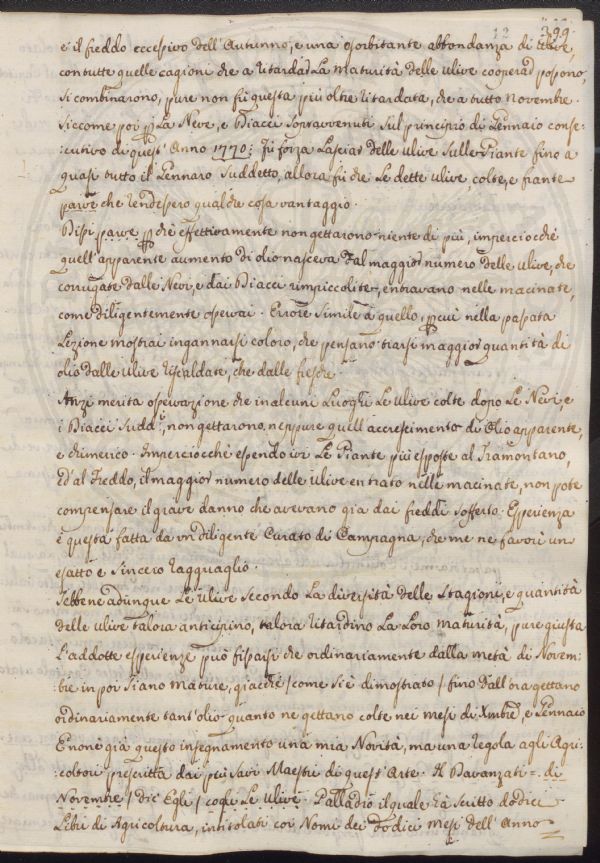 12 399
e il freddo eccessivo dell'Autunno, e una esorbitante abbondanza di Ulive,
con tutte quelle cagioni che a ritardar La maturità delle ulive cooperar possono,
si combinarono, pure non fù questa più oltre ritardata, che a tutto Novembre.
Siccome poi p La Neve, e Diacci sopravvenuti sul principio di Gennaio conse-
cutivo di quest'Anno 1770: fù forza Lasciar delle ulive sulle Piante fino a
quasi tutto il Gennaro suddetto, allora fù che Le dette ulive, colte, e frante
parve che rendessero qualche cosa vantaggio.
Dissi parve pchè effettivamente non gettarono niente di più, imperciocchè
quell'apparente aumento di olio nasceva dal maggior numero delle ulive, che
corrugate dalle Nevi, e dai Diacci rimpiccolite, entravano nelle macinate,
come diligentemente osservai. Errore simile a quello, p cui nella passata
Lezione mostrai ingannarsi coloro, che pensano trarsi maggior quantità di
olio dalle ulive riscaldate, che dalle fresche.
Anzi merita osservazione che in alcuni Luoghi Le ulive colte dopo Le Nevi, e
i Diacci Sudd.i, non gettarono, neppure quell'accrescimento di Olio apparente,
e chimerico. Imperciocchè essendo ivi Le Piante più esposte al Tramontano,
ed al Freddo, il maggior numero delle ulive entrato nelle macinate, non potè
compensare il grave danno che avevano già dai freddi sofferto. Esperienza
è questa fatta da un diligente Curato di Campagna, che me ne favorì un
esatto e sincero ragguaglio.
Sebbene adunque Le ulive secondo La diversità delle Stagioni, e quantità
delle ulive talora anticipino, talora ritardino La Loro maturità, pure giusta
L'addotte esperienze può fissarsi che ordinariamente dalla metà di Novem-
bre in poi siano mature, giacchè / come si è dimostrato / fino dall'ora gettano
ordinariamente tant'olio quanto ne gettano colte nei mesi di Xmbre, e Gennaio
E non è già questo insegnamento una mia Novità, ma una regola agli Agri-
coltori prescritta dai più savi Maestri di quest'Arte. Il Davanzati = di
Novembre / dic'Egli / cogli Le ulive. Palladio il quale hà scritto dodici
Libri di Agricoltura, intitolati coi Nomi dei dodici mesi dell'Anno